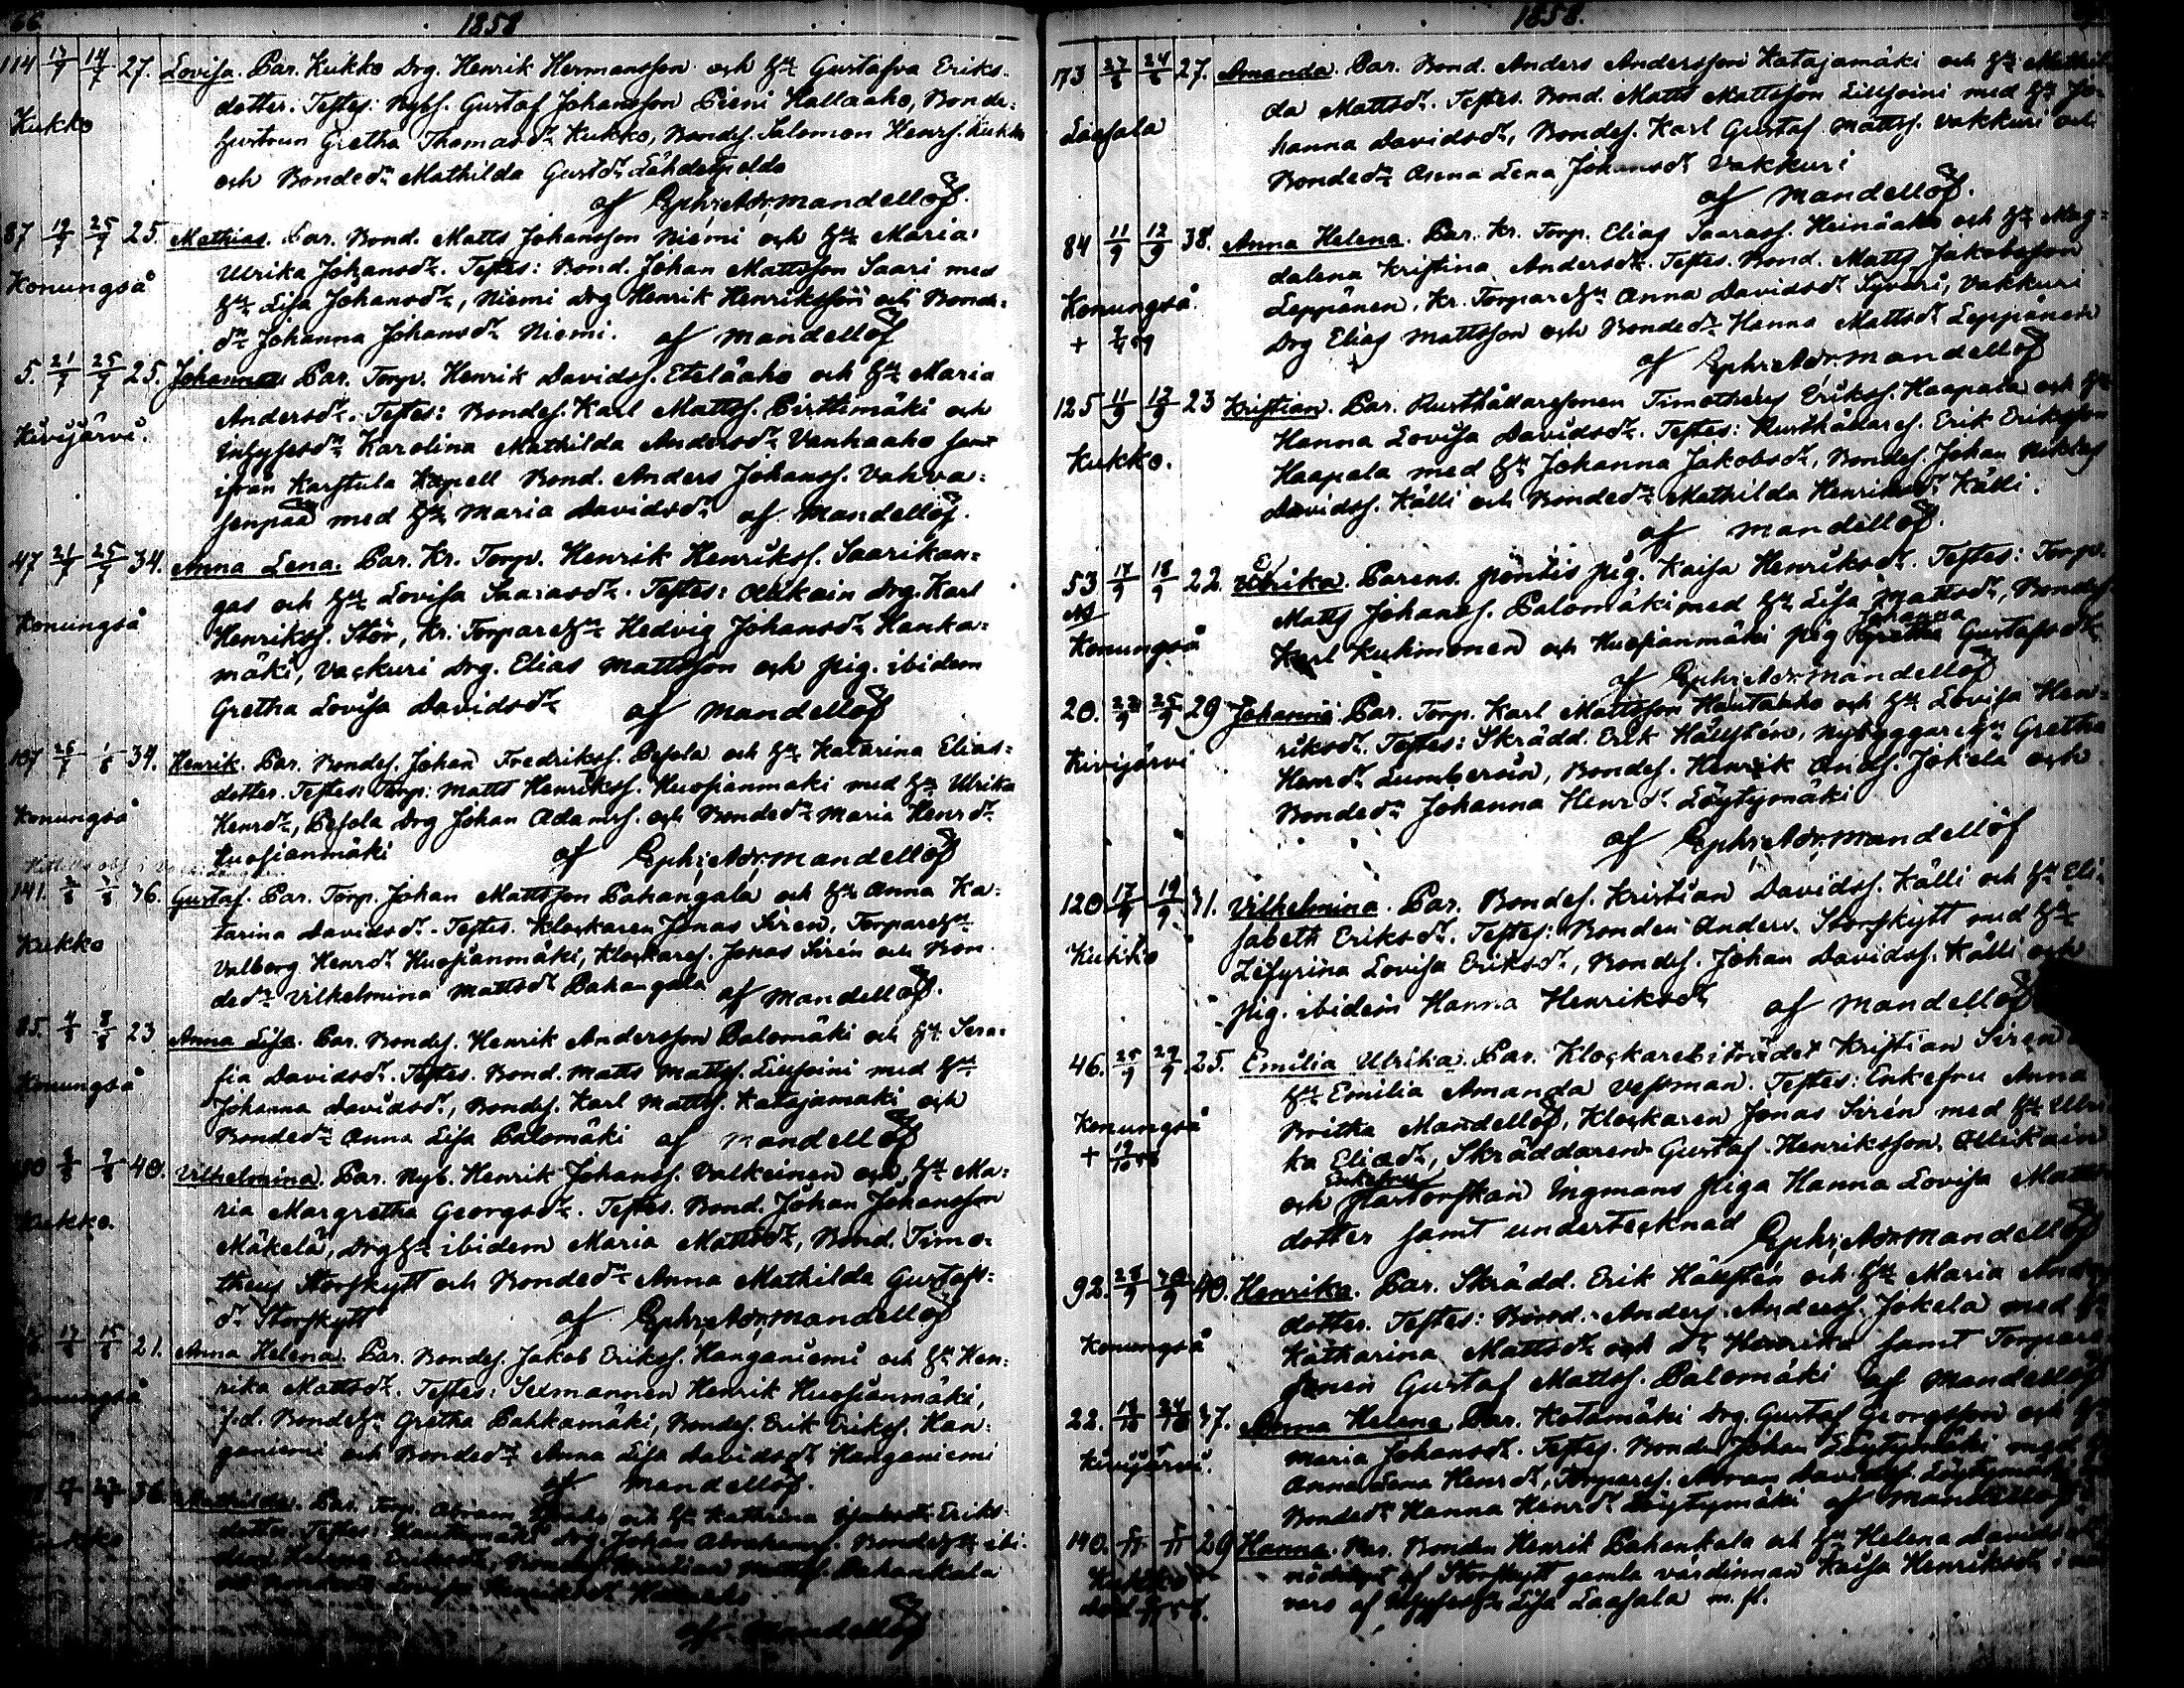 66.
1858
114 17/7 18/7 27. Lovisa. Par. Kukko Drg. Henrik Hermansson och Hu Gustafva Eriks-
dotter. Testes: Nybs. Gustaf Johansson Pieni Kallaaho, Bonde-
Kukko
hustrun Gretha Thomasdr Kukko, Bondes. Salomon Henrs. Kukko
och Bondedr Mathilda Gustdr Lähdetpeldo
af Ephr. Adr. Mandellöf.
87 19/7 25/7 25. Mathias. Par. Bond. Matts Johansson Niemi och Hu Maria
Konungså
Ulrika Johansdr. Testes: Bond. Johan Mattsson Saari med
Hu Lisa Johansdr, Niemi Drg Henrik Henriksson och Bonde-
dr Johanna Johansdr Niemi. af Mandellöf
5. 21/7 25/7 25. Johannes Par. Torp. Henrik Davidss. Eteläaho och Hu Maria
Kivijärvi.
Andersdr. Testes: Bondes. Karl Mattss. Pirttimäki och
Inhysesdr Karolina Mathilda Andersdr Vanhaaho samt
ifrån Karstula Kapell Bond. Anders Johanss. Vahva-
senpää med Hu Maria Davidsdr af Mandellöf.
47 21/7 25/7 34. Anna Lena. Par. Kr. Torp. Henrik Henrikss. Saarikan-
Konungså
gas och Hu Lovisa Saarasdr. Testes: Drg. Karl
Henrikss. Stör, Kr. Torpare Hu Hedvig Johansdr Hanka-
mäki, Vackuri Drg. Elias Mattsson och pig. ibidem
Gretha Lovisa Davidsdr af Mandellöf
107 26/7 1/8 34. Henrik. Par. Bondes. Johan Fredrikss. Pesola och Hu Katarina Elias-
dotter. Testes: Torp. Matts Henrikss. Huosianmaki med Hu Ulrika
Konungså
Henrdr, Pesola Drg Johan Adamss. och Bondedr Maria Henrdr
Huosianmäki af Ephr. Adr. Mandellöf
141. 36. Gustaf. Par. Torp. Johan Mattsson Pahangala och Hu Anna Ka-
Kukko
tarina Davidsdr. Testes. Klockaren Jonas Siren, Torpare Hu
Valborg Henrdr Huosianmäki, Klockares. Jonas Sirén och Bon-
dedr Vilhelmina Mattsdr Pahangala af Mandellöf.
85. 4/8 8/8 23 Anna Lisa. Par. Bondes. Henrik Andersson Palomäki och Hu Sera-
Konungså
fia Davidsdr. Testes. Bond. Matts Mattss. Liesoini med Hu
Johanna Davidsdr, Bondes. Karl Mattss. Katajamaki och
Bondedr Anna Lisa Palomäki af Mandellöf
40. Vilhelmina. Par. Nyb. Henrik Johanss. Valkeinen och Hu Ma-
Kukko.
ria Margretha Georgsdr. Testes. Bond. Johan Johansson
Mäkelä, Drg Hu ibidem Maria Mattsdr, Bond. Timo-
theus Storskytt och Bondedr Anna Mathilda Gustafs-
dr Storskytt af Ephr. Adr. Mandellöf
21. Anna Helena. Par. Bondes. Jakob Erikss. Hanganiemi och Hu Hen-
Konungså
rika Mattsdr. Testes: Sexmannen Henrik Huosianmäki,
f.d. Bonde Hu Gretha Pahkamäki, Bondes. Erik Erikss. Han-
ganiemi och Bondedr Anna Lisa Davidsdr Hanganiemi
af Mandellöf.
36. Mathilda. Par. Torp. Abram och Hu Kathrina Eriks-
dotter. Testes. Drg. Johan Abrahams. Bonde Hu ibi-
Kukko
dem Helena Eriksdr, Bondes. Kristian Mattss. Pahankala
och Bondedr Lovisa
af Mandellöf
1858.
173 27. Amanda. Par. Bond. Anders Andersson Katajamäki och Hu Mathil-
da Mattsdr. Testes. Bond. Matts Mattsson Liesoini med Hu Jo-
Laasala
hanna Davidsdr, Bondes. Karl Gustaf Mattss. Vakkuri och
Bondedr Anna Lena Johansdr Vakkuri
af Mandellöf.
84 11/9 12/9 38. Anna Helena. Par. Kr. Torp. Elias Saarass. Heinäaho och Hu Mag-
dalena Kristina Andersdr. Testes. Bond. Matts Jakobsson
Konungså.
Leppänen, Kr. Torpare Hu Anna Davidsdr Syväri, Vakkuri
+ Drg Elias Mattsson och Bondedr Hanna Mattsdr Leppänen
af Ephr. Adr. Mandellöf
125 11/9 12/9 23 Kristian. Par. Rusthållaresonen Timotheus Erikss. Haapala och Hu
Hanna Lovisa Davidsdr. Testes: Rusthållares. Erik Eriksson
Kukko.
Haapala med Hu Johanna Jakobsdr, Bondes. Johan Niklas
Davidss. Källi och Bondedr Mathilda Henriksdr Källi.
af Mandellöf.
53 17/9 18/9 22. Ulrika. Parens. pig. Kaisa Henriksdr. Testes: Torp.
Matts Johanss. Palomäki med Hu Lisa Mattsdr, Bondes.
Konungså
Johanna
Karl Kuhmonen och Huosianmäki pig Gretha Gustafsdr
af Ephr. Adr. Mandellöf
20. 22/9 25/9 29 Johanna Par. Torp. Karl Mattsson Hautaaho och Hu Lovisa Hen-
riksdr. Testes: Skrädd. Erik Hällstén, Nybyggare Hu Gretha
Kivijärvi
Henrdr Lumberin, Bondes. Henrik Anderss. Jokela och
Bondedr Johanna Henrdr Löytymäki
af Ephr. Adr. Mandellöf
120 17/9 19/9 31. Vilhelmina. Par. Bondes. Kristian Davidss. Källi och Hu Eli-
sabeth Eriksdr. Testes: Bonden Anders Storskytt med Hu
Kukko
Zefyrina Lovisa Eriksdr, Bondes. Johan Davidss. Källi och
pig. ibidem Hanna Henriksdr af Mandellöf
46. 25/9 29/9 25. Emilia Ulrika. Par. Klockarebiträdet Kristian Siren
Hu Emilia Amanda Vessman. Testes: Enkefru Anna
Konungså
Britha Mandellöf, Klockaren Jonas Sirén med Hu Ulri-
+ ka Eliasdr, Skräddaren Gustaf Henriksson
Enkefru
och Ingmans piga Hanna Lovisa Matts-
dotter samt undertecknad Ephr. Adr. Mandellöf
92. 40. Henrika. Par. Skrädd. Erik Hällstén och Hu Maria Anders-
dotter. Testes: Bond. Anders Anderss. Jokela med Hu
Konungså
Katharina Mattsdr och dr Henrika samt Torpare-
sonen Gustaf Mattss. Palomäki af Mandellöf
22. 37. Anna Helena. Par. Katamäki Drg. Gustaf Georgsson och Hu
Kivijärvi.
Maria Johansdr. Testes. Bonden Johan Löytymäki med Hu
Anna Lena Henrdr, Torpares. Abram Davidss. Löytymäki
Bondedr Hanna Henrdr Löytymäki af Mandellöf
140. 29 Hanna. Par. Bonden Henrik Pahankala och Hu Helena Davidsdr
Kukko
nöddöpt af Storskytt gamla värdinnan Kaisa Henriksdr
död
vara af Lisa Laasala m. fl.